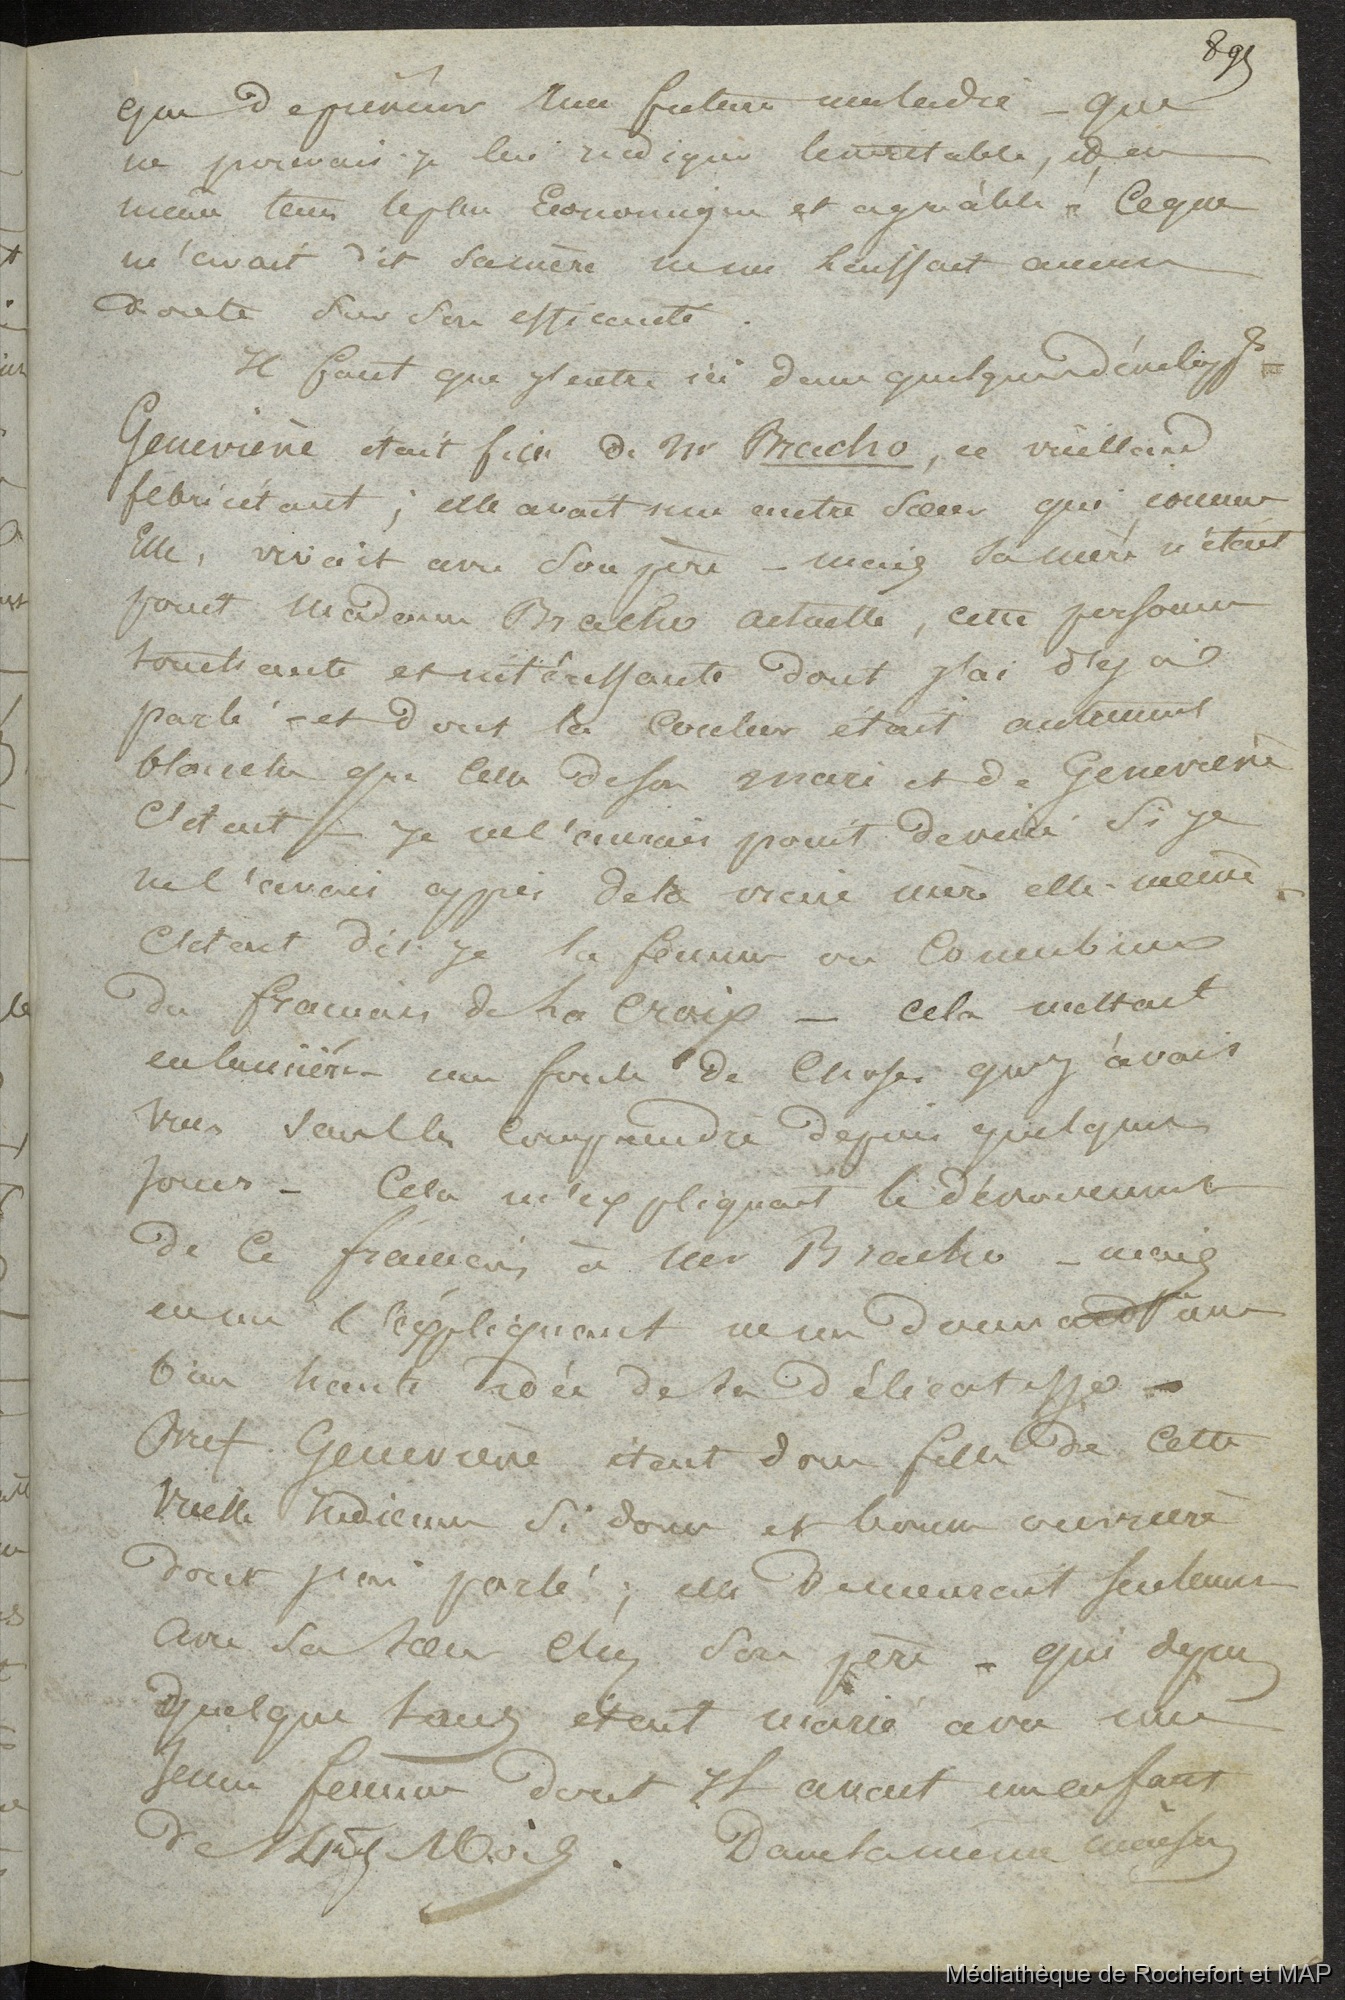 895
que de prévenir une future maladie – que
ne pouvais-je lui indiquer le véritable, et en
même tems le plus Economique et agréable ! Ce que
m'avait dit sa mère ne me laissait aucun
doute sur son efficacité.
Il faut que j'entre ici dans quelques développts –
Geneviève était fille de Mr Bracho, ce vieillard
fébricitant ; elle avait une autre sœur qui, comme
Elle, vivait avec son père – mais sa mère n'était
point Madame Bracho actuelle, cette personne
touchante et intéressante dont j'ai déjà
parlé – et dont la couleur était autrement
blanche que celle de son mari et de Geneviève
C'était – je ne l'aurais point deviné si je
ne l'avais appris de la vraie mère elle-même –
C'était dis-je la femme ou Concubine
du français de La Croix – cela mettait
en lumière une foule de choses que j'avais
vues sans les comprendre depuis quelques
jours – Cela m'expliquait le dévouement
de ce français à Mr Bracho – mais
en me l'expliquant ne me donnait pas une
bien haute idée de sa délicatesse –
Bref Geneviève était donc fille de cette
vieille Indienne si douce et bonne ouvrière
dont j'ai parlé ; elle demeurait seulement
avec sa sœur chez son père – qui depuis
quelque tems était marié avec une
jeune femme dont Il avait un enfant
de Mois. Dans la même maison